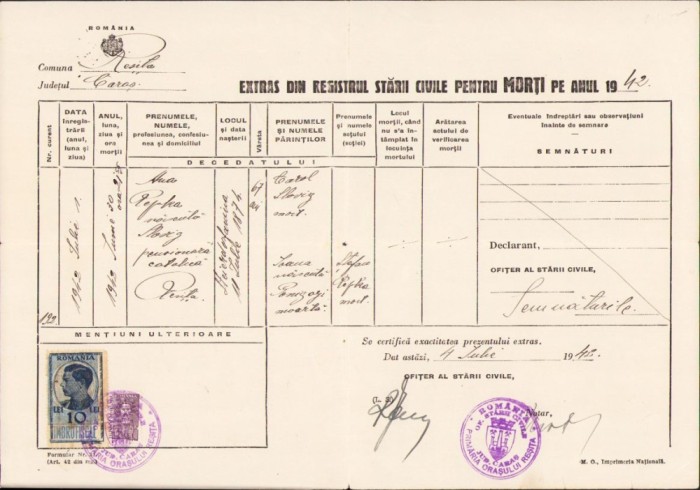 ROMÂNIA
Comuna Reșița
Județul Caraș
EXTRAS DIN REGISTRUL STĂRII CIVILE PENTRU MORȚI PE ANUL 1942
Nr. curent
DATA înregis-trării (anul, luna și ziua)
ANUL, luna, ziua și ora morții
PRENUMELE, NUMELE, profesiunea, confesiu-nea și domiciliul
LOCUL și data nașterii
Vârsta
PRENUMELE ȘI NUMELE PĂRINȚILOR
Prenumele și numele soțului (soției)
Locul morții, când nu s'a în-tâmplat în locuința mortului
Arătarea actului de verificarea morții
Eventuale îndreptări sau observațiuni înainte de semnare
SEMNĂTURI
DECEDATULUI
199
1942 Iulie 1.
1942 Iunie 30
Ana
Pepka
născută
Slovig
pensionară
catolică
Reșița
11 Iulie 1874
67
ani
Carol
Slovig
mort
Ioana
născută
moartă
Ștefan
Pepka
mort
Declarant,
OFIȚER AL STĂRII CIVILE,
Semnătările
MENȚIUNI ULTERIOARE
Se certifică exactitatea prezentului extras.
Dat astăzi, 4 Iulie 1942
OFIȚER AL STĂRII CIVILE,
(L. S.)
Notar,
ROMANIA
LEI 10 LEI
ROMÂNIA
OF. STĂRII CIVILE
JUD. CARAȘ
PRIMĂRIA ORAȘULUI REȘIȚA
Formular Nr.
(Art. 42 din reg.)
M. O., Imprimeria Națională.